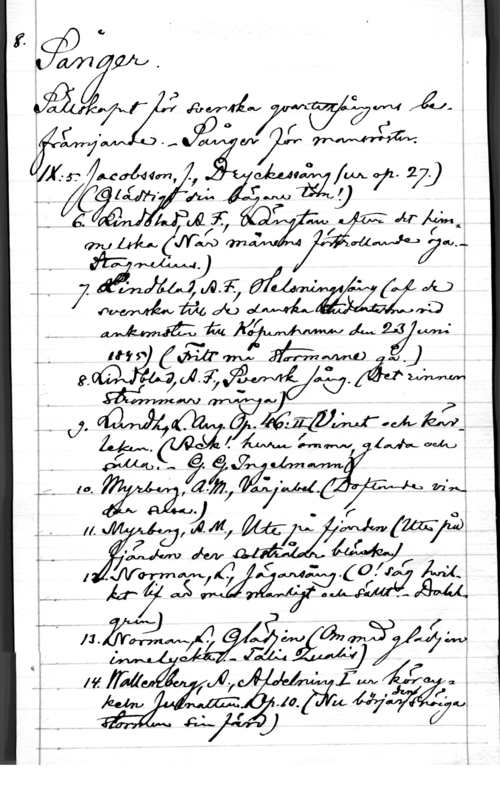 8.
Sånger.
Sällskapet för svenska qvartettsångens be-
främjande. - Sånger för mansröster.
IX:5. Jacobsson, J., Dryckessång (ur op. 27.)
(Glädtigt din bägare töm!)
6. Lindblad, A. F., Längtan efter det him-
melska (När månens förtrollande öga. -
Stagnelius.)
7. Lindblad, A. F., Helsningssång (af de
svenska till de danska studenterna vid
ankomsten till Köpenhamn den 23 juni
1845) (Fritt må stormarne gå.)
8. Lindblad, A. F., Svensk sång. (Det rinner
strömmar många)
9. Lundh, L. Aug. Op. 46:II (Vinet och kär-
leken. (Ack! huru ömma, glada och
sälla. - G. G. Ingelmann)
10. Myrberg, A. M., Vårjubel. (Doftende vin-
dar susa.)
11. Myrberg, A. M., Ute på fjärden (Ute på
fjärden der solstrålar blänka)
12. Norman, L., Jägarsång. (O! säg hvil-
ket lif är mera manligt och sällt. - Dahl-
gren)
13. Norman, L., Glädjen (Om med glädjen
innelycktet - Talis Qualis)
14. Wallenberg, A., Afdelning I ur körcy-
keln Julnatten. Op. 10. (Nu börjar den snöiga
stormen sin färd)